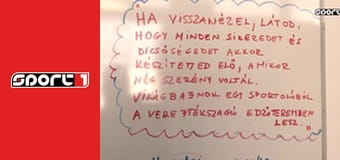 SPORT 1
SPORT
HA VISSZANÉZEL, LÁTOD,
HOGY MINDEN SIKEREDET ÉS
DICSŐSÉGEDET AKKOR
KÉSZÍTETTED ELŐ, AMIKOR
MÉG SZERÉNY VOLTÁL.
VILÁGBAJNOK EGY SPORTOLÓBÓL
A VEREJTÉKSZAGÚ EDZŐTEREMBEN
LESZ."